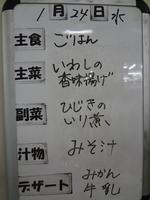 1月24日水
主食 ごはん
主菜 いわしの
香味揚げ
副菜 ひじきの
いり煮
汁物 みそ汁
デザート みかん
牛乳